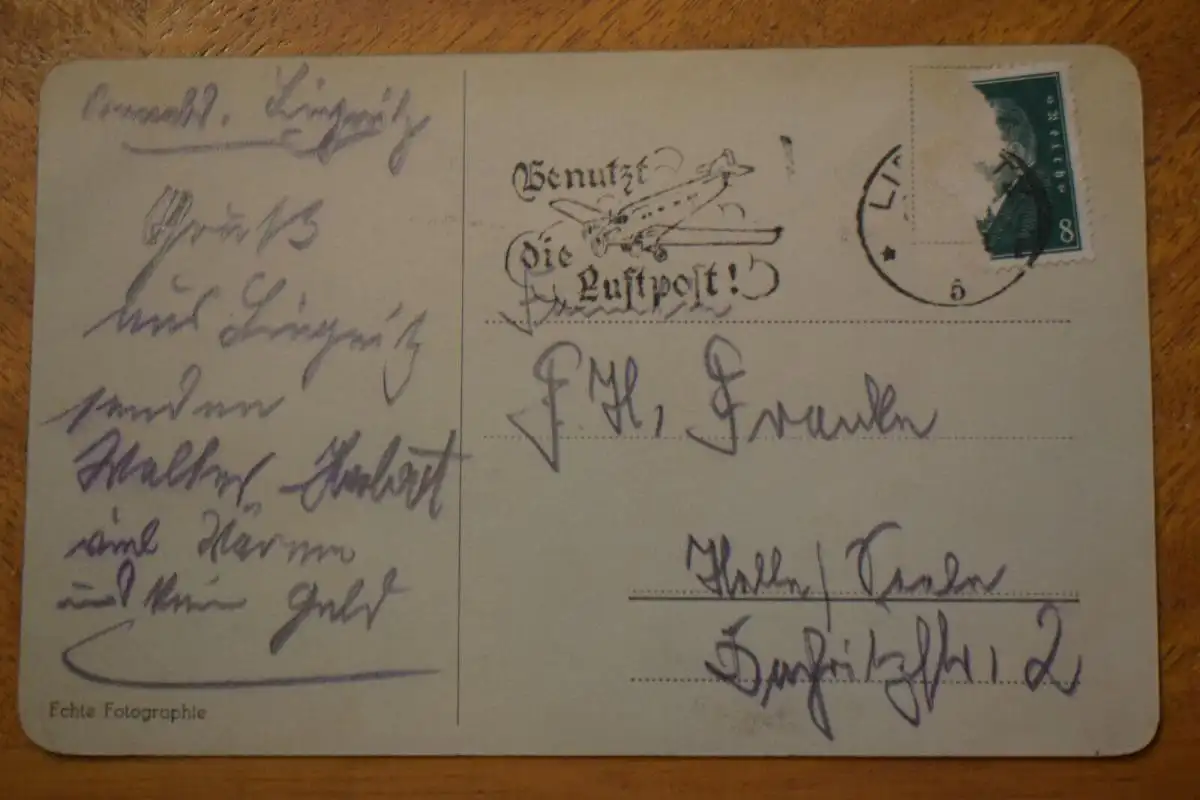 Liegnitz
Gruß
aus Liegnitz
senden
Walter Herbert
viel Wärme
und kein Geld
Echte Fotographie
Benutzt
die
Luftpost!
LI
5
8
F. H. Franke
Halle / Saale
2